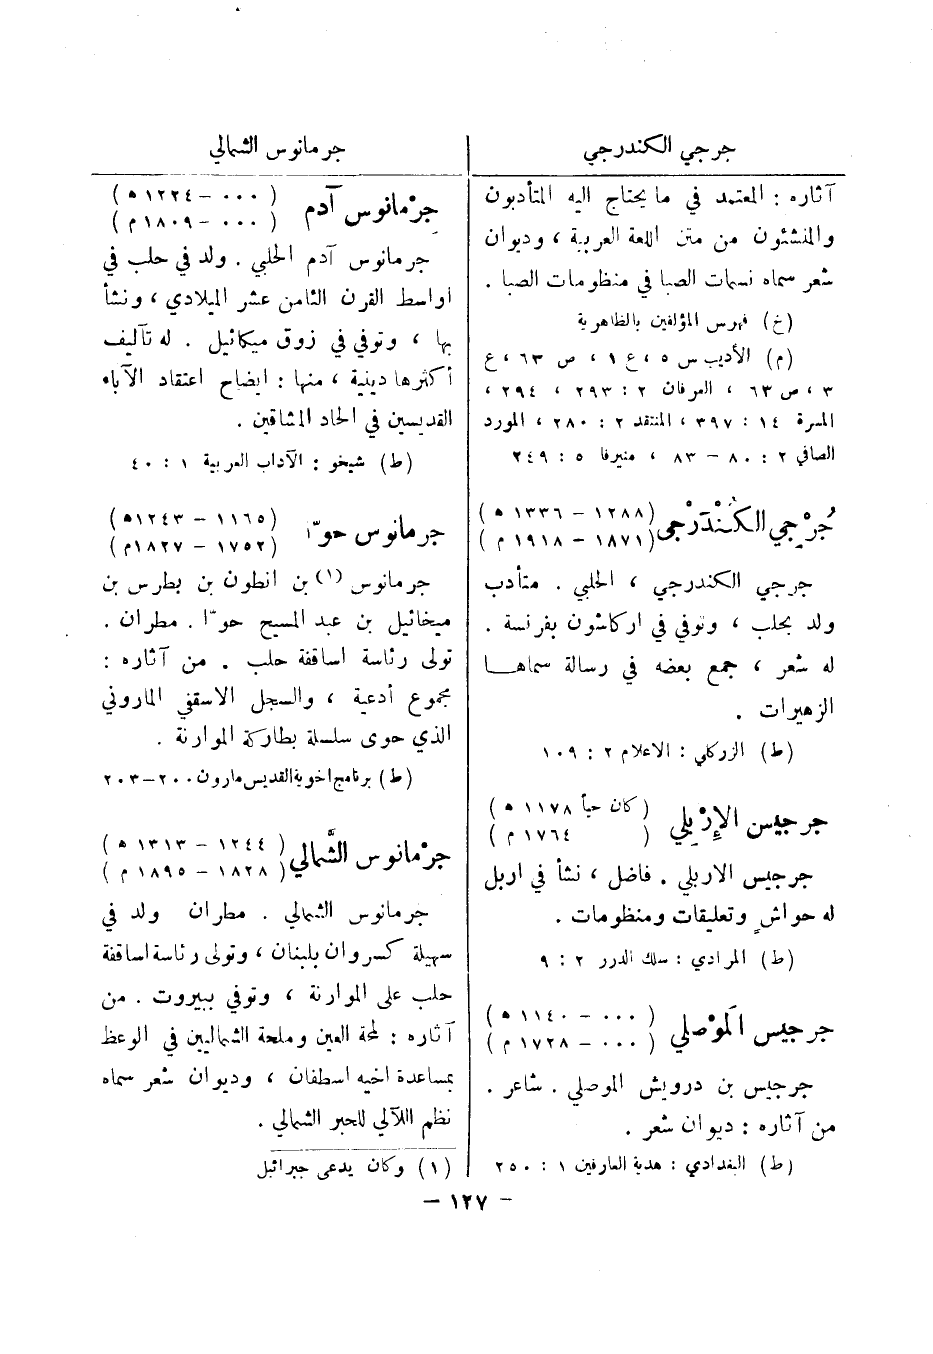 جرجي الكندرجي
آثاره : المعتمد في ما يحتاج اليه المتأدبون
والمنشئون من متن اللغة العربية ، وديوان
شعر سماه نسمات الصبا في منظومات الصبا .
(خ) فهرس المؤلفين بالظاهرية
(م) الأديب س ٥ ، ع ١ ، ص ٦٣ ، ع
٣ ، ص ٦٣ ، العرفان ٢ : ٢٩٣ ، ٢٩٤ ،
المسرة ١٤ : ٣٩٧ ، المنتقد ٢ : ٢٨٠ ، المورد
الصافي ٢ : ٨٠ – ٨٣ ، منيرفا ٥ : ٢٤٩
جُرْجِي الكُنْدَرْجي (١٢٨٨ – ١٣٣٦ ه)
(١٨٧١ – ١٩١٨ م)
جرجي الكندرجي ، الحلبي . متأدب
ولد بحلب ، وتوفي في اركاشون بفرنسة .
له شعر ، جمع بعضه في رسالة سماهـا
الزهيرات .
(ط) الزركلي : الاعلام ٢ : ١٠٩
جرجيس الإِرْبِلي (كان حياً ١١٧٨ ه)
( ١٧٦٤ م)
جرجيس الاربلي . فاضل ، نشأ في اربل
له حواشٍ وتعليقات ومنظومات .
(ط) المرادي : سلك الدرر ٢ : ٩
جرجيس المَوْصلي (٠٠٠ – ١١٤٠ ه)
(٠٠٠ – ١٧٢٨ م)
جرجيس بن درويش الموصلي . شاعر .
من آثاره : ديوان شعر .
(ط) البغدادي : هدية العارفين ١ : ٢٥٠
جرمانوس الشمالي
جِرْمانوس آدم (٠٠٠ – ١٢٢٤ ه)
(٠٠٠ – ١٨٠٩ م)
جرمانوس آدم الحلبي . ولد في حلب في
اواسط القرن الثامن عشر الميلادي ، ونشأ
بها ، وتوفي في زوق ميكائيل . له تآليف
أكثرها دينية ، منها : ايضاح اعتقاد الآباء
القديسين في اتحاد المشاقين .
(ط) شيخو : الآداب العربية ١ : ٤٠
جرمانوس حوّا (١١٦٥ – ١٢٤٣ه)
(١٧٥٢ – ١٨٢٧م)
جرمانوس (١) بن انطون بن بطرس بن
ميخائيل بن عبد المسيح حوّا . مطران .
تولى رئاسة اساقفة حلب . من آثاره :
مجموع أدعية ، والسجل الاسقفي الماروني
الذي حوى سلسلة بطاركة الموارنة .
(ط) برنامج اخوية القديس مارون ٢٠٠ – ٢٠٣
جرْمانوس الشَّمالي (١٢٤٤ – ١٣١٣ ه)
(١٨٢٨ – ١٨٩٥ م)
جرمانوس الشمالي . مطران ولد في
سهيلة كسروان بلبنان ، وتولى رئاسة اساقفة
حلب على الموارنة ، وتوفي ببيروت . من
آثاره : لمحة العين وملحة الشماليين في الوعظ
بمساعدة اخيه اسطفان ، وديوان شعر سماه
نظم اللآلي للحبر الشمالي .
(١) وكان يدعى جبرائيل
– ١٢٧ –